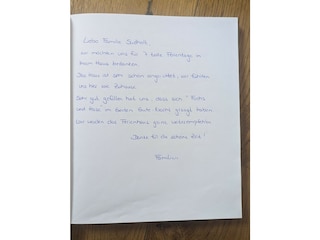 Liebe Familie
wir möchten uns für 7 tolle Ferientage in
Ihrem Haus bedanken.
Das Haus ist sehr schön eingerichtet, wir fühlten
uns hier wie Zuhause.
Sehr gut gefallen hat uns, dass sich
und Hase im Garten Gute Nacht gesagt haben.
Wir werden das Ferienhaus gerne weiterempfehlen.
Danke für die schöne Zeit!
Familie